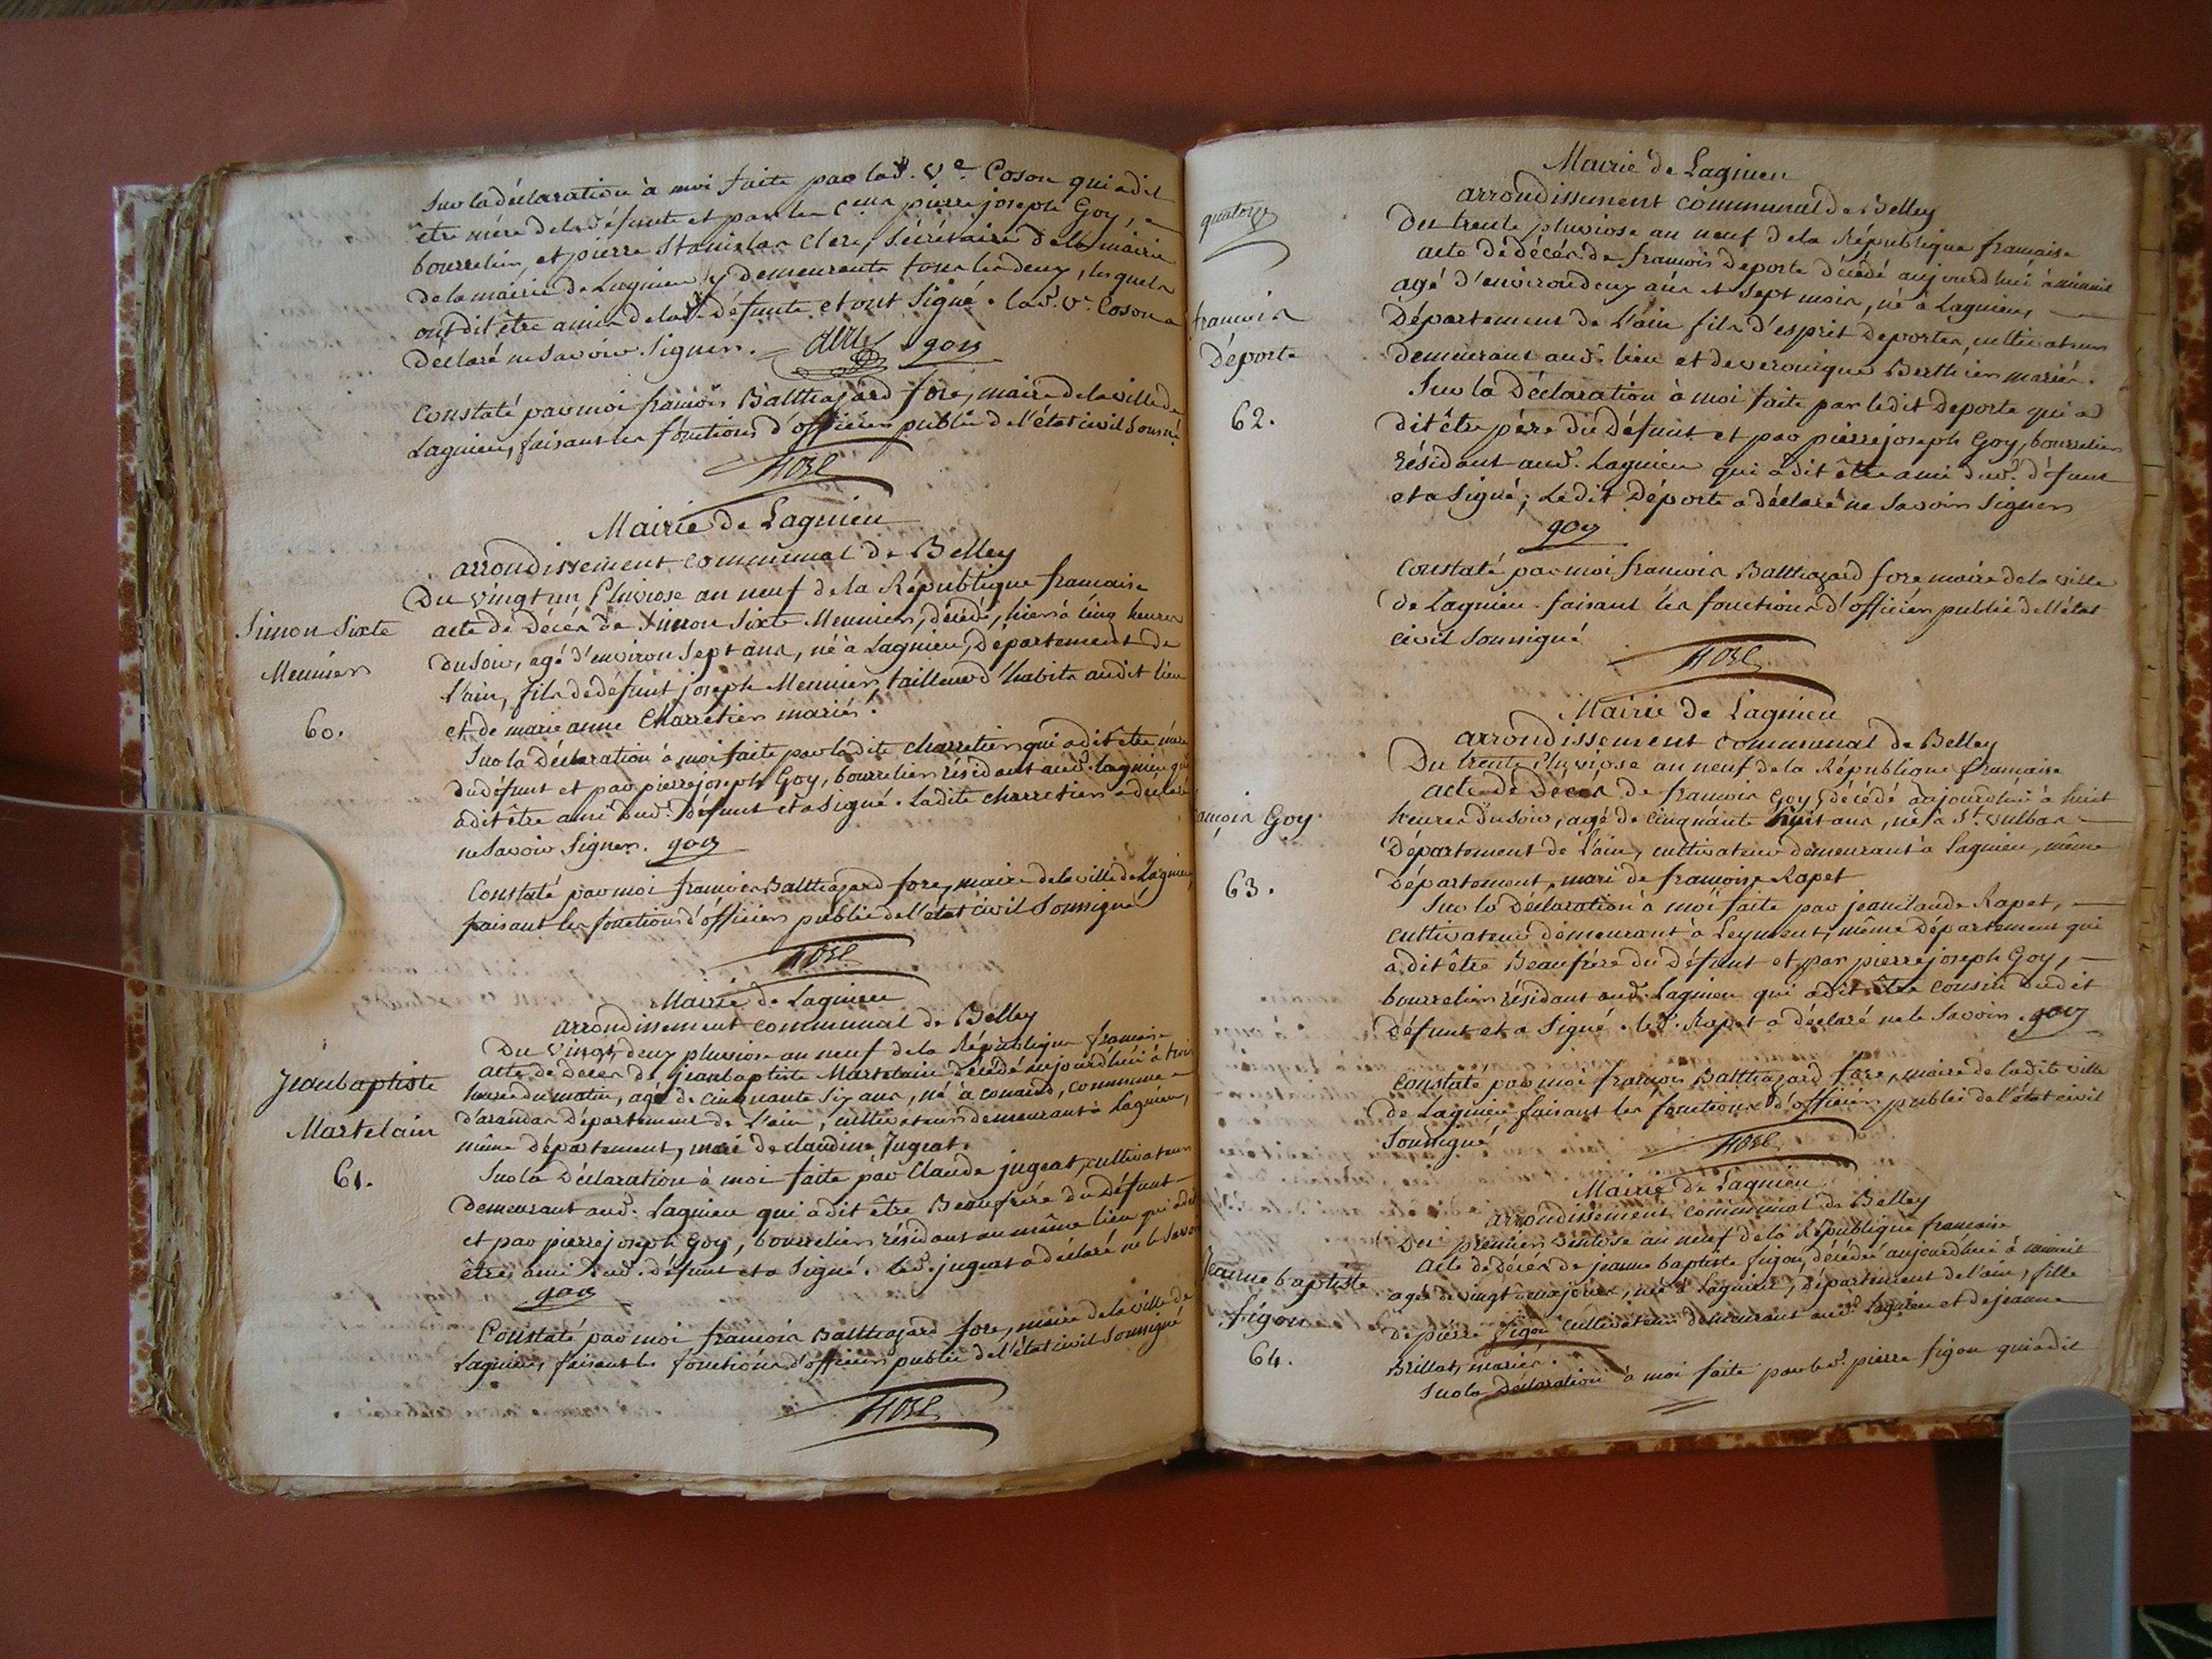 Sur la déclaration à moi faite par lad. Ve. Coson qui a dit
être mère de la défunte et par les Cens pierre joseph Goy,
bourrelier et pierre Stanislas Clerc, Sécrétaire de la mairie
de la mairie de Lagnieu y demeurants tous les deux, lesquels
ont dit être amis de lad. défunte et ont Signé. lad. Ve. Coson a
déclaré ne Savoir Signer. goy
Constaté par moi francois Balthazard fore, maire de la ville de
Lagnieu, faisant les fonctions d'officier public de l'état civil Soussigné
fore
Mairie de Lagnieu
arrondissement communal de Belley
Du vingt un Pluviose an neuf de la République francaise
Simon Sixte
Meunier
60.
acte de Décès de Simon Sixte Meunier, décédé, hier à cinq heures
du Soir, agé d'environ Sept ans, né à Lagnieu, Département de
l'ain, fils de défunt joseph Meunier, tailleur d'habits audit lieu
et de marie anne Charretier mariés.
Sur la Déclaration à moi faite par ladite charretier qui a dit être mère
du défunt et par pierre joseph Goy, bourrelier résidant aud. Lagnieu qui
a dit être ami dud. Défunt et a Signé. Ladite charretier a déclaré
ne Savoir Signer. goy
Constaté par moi francois Balthazard fore, maire de la ville de Lagnieu,
faisant les fonctions d'officier public de l'état civil Soussigné
fore
Mairie de Lagnieu
arrondissement communal de Belley
Du vingt deux pluviose an neuf de la République francaise
Jean baptiste
Martelain
61.
acte de Décès de jean baptiste Martelain Décédé aujourd'hui à trois
heures du matin, agé de cinquante Six ans, né à conand, commune
d'arandas Département de L'ain, cultivateur demeurant à Lagnieu,
même département, mari de claudine Jugeat.
Sur la Déclaration à moi faite par Claude jugeat, cultivateur
Demeurant aud. Lagnieu qui a dit être Beaufrère du Défunt
et par pierre joseph Goy, bourrelier résidant au même lieu qui a dit
être ami dud. défunt et a Signé. led. jugeat a déclaré ne le Savoir
goy
Constaté par moi francois Balthazard fore, maire de la ville de
Lagnieu, faisant les fonctions d'officier public de l'état civil Soussigné
fore
quatorze
Mairie de Lagnieu
arrondissement communal de Belley
Du trente pluviose an neuf de la République francaise
francois
Déporte
62.
acte de décès de francois deporte décédé aujourd'hui à minuit
agé d'environ deux ans et Sept mois, né à Lagnieu,
Département de L'ain fils d'esprit deportes, cultivateur
demeurant aud. lieu et de veronique Berthier mariés.
Sur la Déclaration à moi faite par ledit Deporte qui a
dit être père du Défunt et par pierre joseph Goy, bourrelier
résidant aud. Lagnieu qui a dit être ami dud. défunt
et a Signé; Ledit Déporte a déclaré ne Savoir Signer
goy
Constaté par moi francois Balthazard fore maire de la ville
de Lagnieu faisant les fonctions d'officier public de l'état
civil Soussigné
fore
Mairie de Lagnieu
arrondissement communal de Belley
Du trente Pluviose an neuf de la République francaise
ancois Goy.
63.
acte de Décès de francois Goy, décédé aujourd'hui à huit
heures du Soir, agé de cinquante huit ans, né à St. vulbas
Département de L'ain, cultivateur demeurant à Lagnieu, même
Département, mari de francoise Rapet
Sur la Déclaration à moi faite par jean claude Rapet,
cultivateur demeurant à Leyment, même Département qui
a dit être Beaufrère du Défunt et par pierre joseph Goy,
bourrelier résidant aud. Lagnieu qui a dit être cousin dudit
défunt et a Signé. led. Rapet a déclaré ne le Savoir. goy
Constaté par moi francois Balthazard fore, maire de ladite ville
de Lagnieu faisant les fonctions d'officier public de l'état civil
Soussigné
fore
Mairie de Lagnieu
arrondissement communal de Belley
Du premier ventose an neuf de la République francaise
Jeanne baptiste
figon
64.
Acte de décès de jeanne baptiste figon, décédée aujourd'hui à minuit
agée de vingt deux jours, née à Lagnieu, Département de l'ain, fille
de pierre figon cultivateur demeurant aud. Lagnieu et de jeanne
Brillat, mariés.
Sur la Déclaration à moi faite par led. pierre figon qui a dit